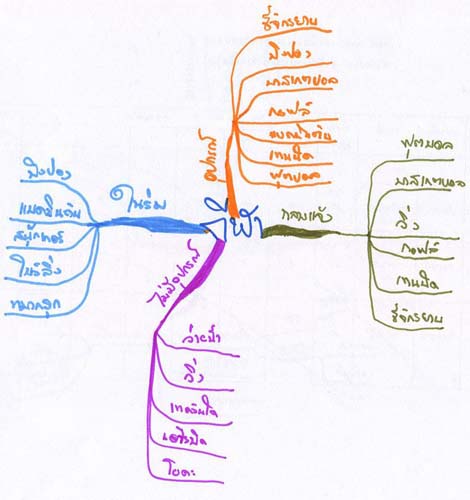 กีฬา
อุปกรณ์
ขี่จักรยาน
ปิงปอง
บาสเกตบอล
กอล์ฟ
แบดมินตัน
เทนนิส
ฟุตบอล
กลางแจ้ง
ฟุตบอล
บาสเกตบอล
วิ่ง
กอล์ฟ
เทนนิส
ขี่จักรยาน
ในร่ม
ปิงปอง
แบดมินตัน
สนุ๊กเกอร์
โบว์ลิ่ง
หมากรุก
ไม่มีอุปกรณ์
ว่ายน้ำ
วิ่ง
เทควันโด
แอโรบิค
โยคะ